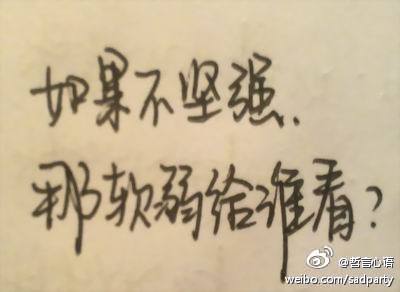 如果不坚强、
那软弱给谁看？
@哲言心语
weibo.com/sadparty